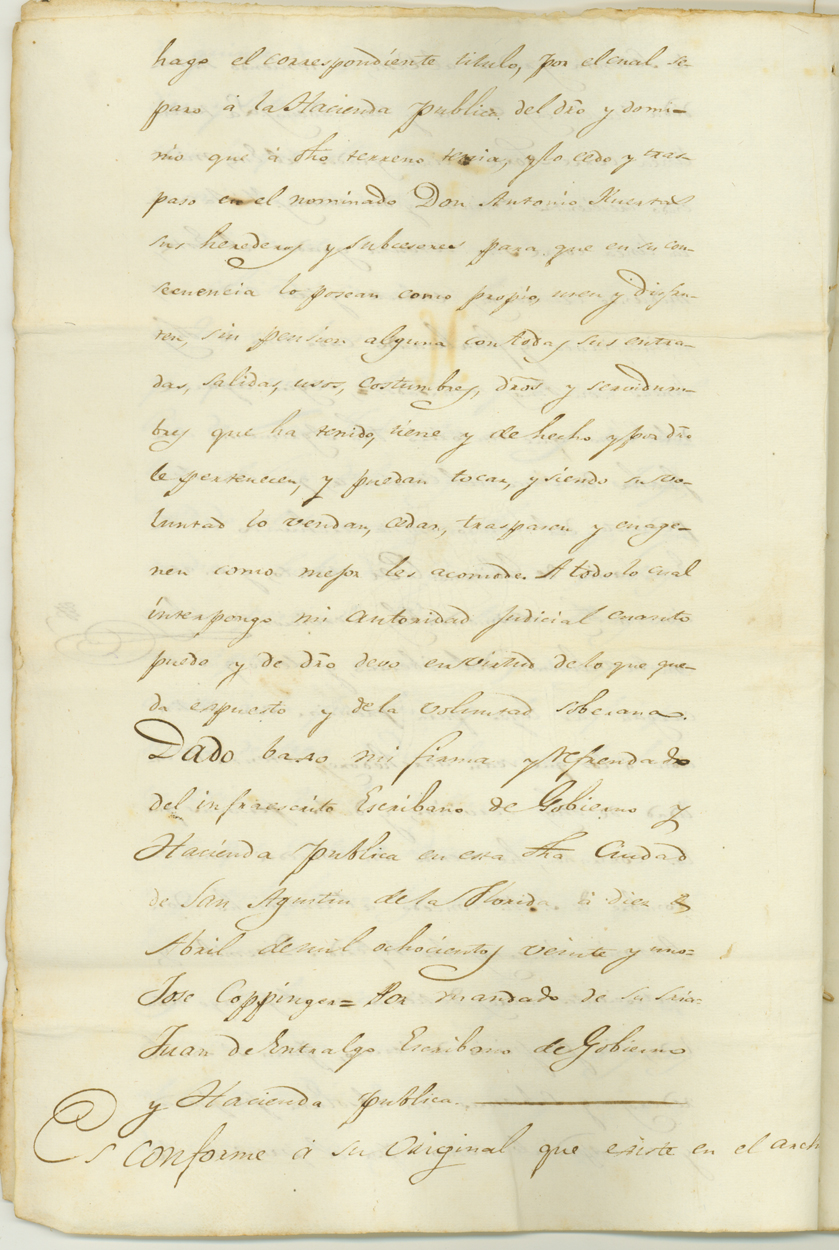 hago el correspondiente titulo, por el cual se-
paro à la Hacienda publica del dro y domi-
nio que à dho terreno tenia, y lo cedo y tras-
paso en el nominado Don Antonio Huertas
sus herederos y subcesores para que en su con-
secuencia lo posean como propio, usen y disfru-
ten, sin pension alguna con todas sus entra-
das, salidas, usos, costumbres, dros y servidum-
bres que ha tenido, tiene y de hecho y por dro
le pertenecen, y puedan tocar, y siendo su vo-
luntad lo vendan, cedan, traspasen y enage-
nen como mejor les acomode. A todo lo cual
interpongo mi autoridad judicial cuanto
puedo y de dro devo en virtud de lo que que-
da espuesto y de la voluntad soberana.
Dado baxo mi firma y refrendado
del infraescrito Escribano de Gobierno y
Hacienda publica en esta dha Ciudad
de San Agustin de la Florida à diez de
Abril de mil ochocientos veinte y uno=
Jose Coppinger= Por mandado de su sria-
Juan de Entralgo Escribano de Gobierno
y Hacienda publica
Es conforme à su original que existe en el arch